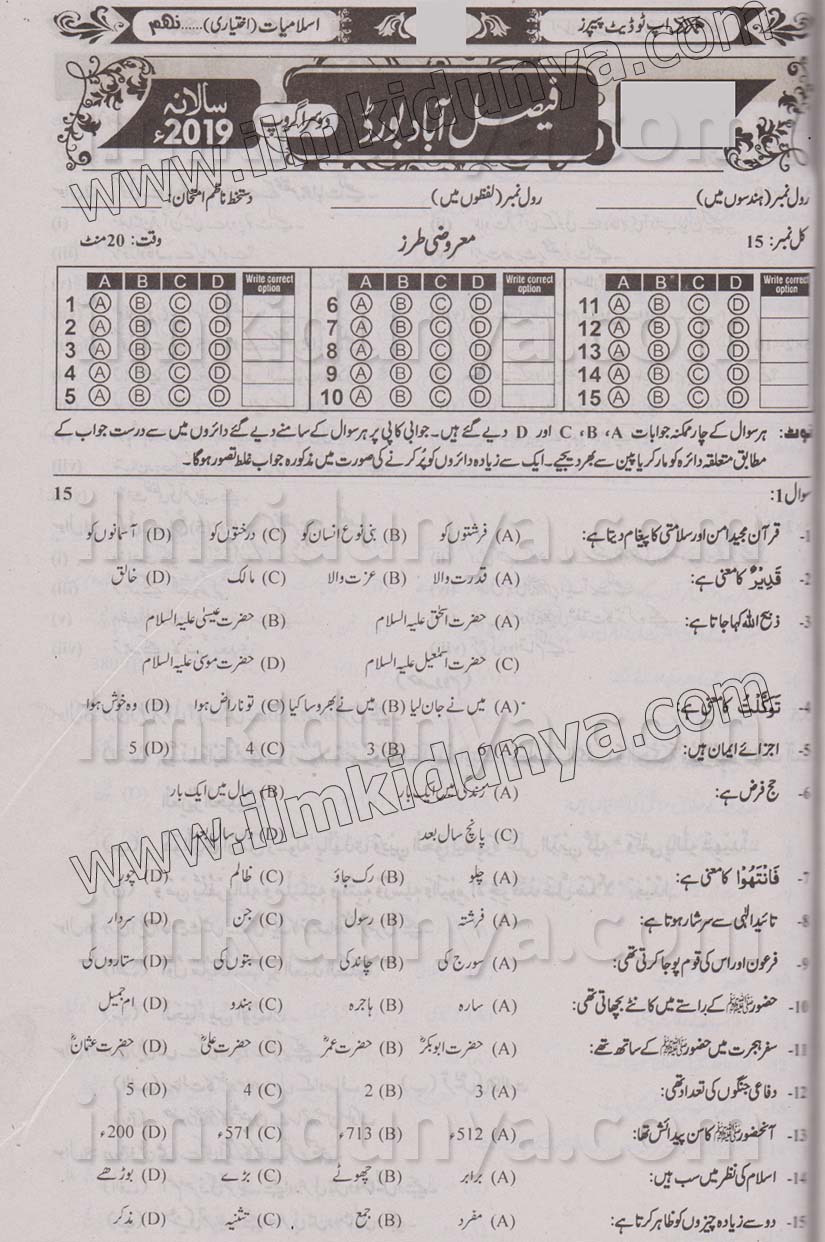 اپ ٹو ڈیٹ پیپرز
اسلامیات (اختیاری)......نہم
فیصل آباد بورڈ
دوسرا گروپ
سالانہ
2019ء
رول نمبر (ہندسوں میں) رول نمبر (لفظوں میں) دستخط ناظم امتحان:
کل نمبر: 15 معروضی طرز وقت: 20 منٹ
A B C D Write correct option A B C D Write correct option A B C D Write correct option
1 A B C D 6 A B C D 11 A B C D
2 A B C D 7 A B C D 12 A B C D
3 A B C D 8 A B C D 13 A B C D
4 A B C D 9 A B C D 14 A B C D
5 A B C D 10 A B C D 15 A B C D
نوٹ: ہر سوال کے چار ممکنہ جوابات A، B، C اور D دیے گئے ہیں۔ جوابی کاپی پر ہر سوال کے سامنے دیے گئے دائروں میں سے درست جواب کے
مطابق متعلقہ دائرہ کو مارکر یا پین سے بھر دیجیے۔ ایک سے زیادہ دائروں کو پُر کرنے کی صورت میں مذکورہ جواب غلط تصور ہوگا۔
سوال 1: 15
1- قرآن مجید امن اور سلامتی کا پیغام دیتا ہے: (A) فرشتوں کو (B) بنی نوع انسان کو (C) درختوں کو (D) آسمانوں کو
2- قَدِیْرٌ کا معنی ہے: (A) قدرت والا (B) عزت والا (C) مالک (D) خالق
3- ذبیح اللہ کہا جاتا ہے: (A) حضرت اسحٰق علیہ السلام (B) حضرت عیسیٰ علیہ السلام
(C) حضرت اسمٰعیل علیہ السلام (D) حضرت موسیٰ علیہ السلام
4- تَوَكَّلْتُ کا معنی ہے: (A) میں نے جان لیا (B) میں نے بھروسا کیا (C) تو ناراض ہوا (D) وہ خوش ہوا
5- اجزائے ایمان ہیں: (A) 6 (B) 3 (C) 4 (D) 5
6- حج فرض ہے: (A) زندگی میں ایک بار (B) سال میں ایک بار
(C) پانچ سال بعد (D) دس سال بعد
7- فَانْتَهُوْا کا معنی ہے: (A) چلو (B) رک جاؤ (C) ظالم (D) چور
8- تائید الٰہی سے سرشار ہوتا ہے: (A) فرشتہ (B) رسول (C) جن (D) سردار
9- فرعون اور اس کی قوم پوجا کرتی تھی: (A) سورج کی (B) چاند کی (C) بتوں کی (D) ستاروں کی
10- حضور ﷺ کے راستے میں کانٹے بچھاتی تھی: (A) سارہ (B) ہاجرہ (C) ہندو (D) ام جمیل
11- سفر ہجرت میں حضور ﷺ کے ساتھ تھے: (A) حضرت ابوبکرؓ (B) حضرت عمرؓ (C) حضرت علیؓ (D) حضرت عثمانؓ
12- دفاعی جنگوں کی تعداد تھی: (A) 3 (B) 2 (C) 4 (D) 5
13- آنحضور ﷺ کا سن پیدائش تھا: (A) 512ء (B) 713ء (C) 571ء (D) 200ء
14- اسلام کی نظر میں سب ہیں: (A) برابر (B) چھوٹے (C) بڑے (D) بوڑھے
15- دو سے زیادہ چیزوں کو ظاہر کرتا ہے: (A) مفرد (B) جمع (C) تثنیہ (D) مذکر
www.ilmkidunya.com
www.ilmkidunya.com
ilmkidunya.com
ilmkidunya.com
ilmkidunya.com
ilmkidunya.com
ilmkidunya.com
ilmkidunya.com